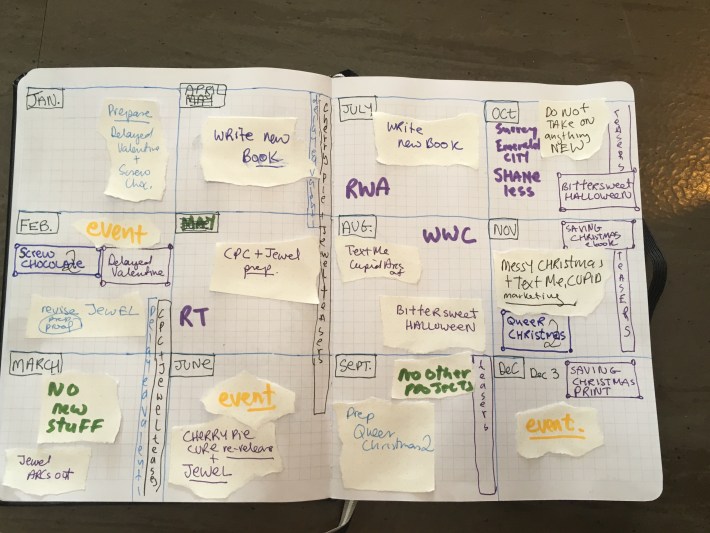 JAN.
Prepare
Delayed
Valentine
+
Screw
Choc.
APRIL
MAY
Write new
Book
Cherry pie + Jewel teasers
FEB.
event
Screw
CHOCOLATE
2
Delayed
Valentine
JEWEL
Delayed Valenti
CPC + Jewel teasers
MAY
CPC + Jewel
prep.
RT
MARCH
NO
new
stuff
Jewel
ARCs out
JUNE
event
CHERRY PIE
CURE re-release
+
JEWEL
JULY
Write
new Book
RWA
OCT
Surrey
Emerald
CITY
SHAME
less
DO NOT
TAKE on
anything
NEW
TEASERS
BITTERSWEET
HALLOWEEN
AUG.
WWC
Text Me
Cupid Arcs
out
BITTERSWEET
HALLOWEEN
NOV
SAVING
CHRISTMAS
ebook
Messy CHRISTMAS
+ Text Me, CUPID
marketing
QUEER
CHRISTMAS
2
TEASERS
SEPT.
no other
projects
Prep
Queer
Christmas 2
teasers
DEC
Dec 3
SAVING
CHRISTMAS
PRINT
event.